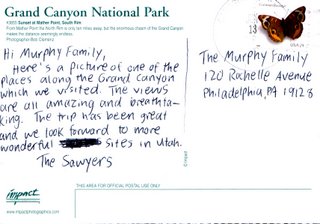 Grand Canyon National Park
K3955 Sunset at Mather Point, South Rim
From Mather Point the North Rim is only ten miles away, but the enormous chasm of the Grand Canyon
makes the distance seemingly endless.
Photographer-Bob Clemenz
Hi Murphy Family,
Here's a picture of one of the
places along the Grand Canyon
which we visited. The views
are all amazing and breathta-
king. The trip has been great
and we look forward to more
wonderful sites in Utah.
The Sawyers
The Murphy Family
120 Rochelle Avenue
Philadelphia, PA 19128
impact
www.impactphotographics.com
THIS AREA FOR OFFICIAL POSTAL USE ONLY
© Impact
13